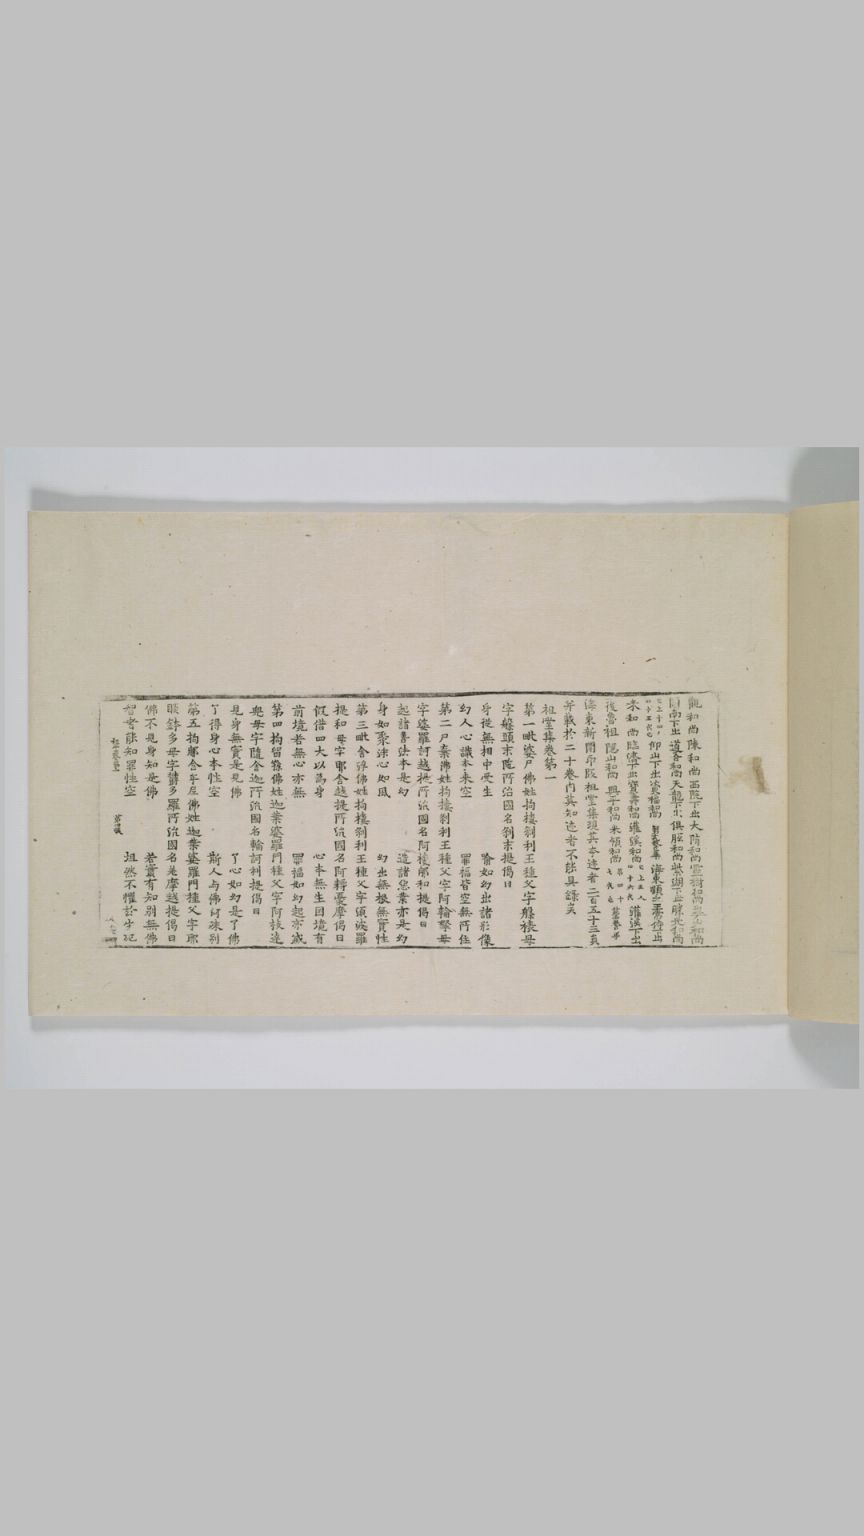 觀和尚 陳和尚 西院下出大隋和尚 靈樹和尚
道吾和尚 天龍下出俱胝和尚 紫湖下出勝光和尚
仰山下出資福和尚
米和尚 臨濟下出寶壽和尚 灌溪和尚
後魯祖 隱山和尚 興平和尚 米嶺和尚
海東新開印版祖堂集現其本迹者二百五十三員
并載於二十卷內莫知迹者不能具錄矣
祖堂集卷第一
第一毗婆尸佛姓拘樓刹利王種父字槃裱母
字槃頭末陁所治國名刹末提偈曰
身從無相中受生 喻如幻出諸形像
幻人心識本來空 罪福皆空無所住
第二尸棄佛姓拘樓刹利王種父字阿輪拏母
字婆羅訶越提所治國名阿樓那和提偈曰
起諸善法本是幻 造諸惡業亦是幻
身如聚沫心如風 幻出無根無實性
第三毗舍浮佛姓拘樓刹利王種父字須波羅
提和母字耶舍越提所治國名阿耨憂摩偈曰
假借四大以為身 心本無生因境有
前境若無心亦無 罪福如幻起亦滅
第四拘留孫佛姓迦葉婆羅門種父字阿枝達
兜母字隨舍迦所治國名輪訶利提偈曰
見身無實是見佛 了心如幻是了佛
了得身心本性空 斯人与佛何殊別
第五拘那含牟尼佛姓迦葉婆羅門種父字耶
睒鉢多母字欝多羅所治國名差摩越提偈曰
佛不見身知是佛 若實有知別無佛
智者能知罪性空 坦然不懼於生死